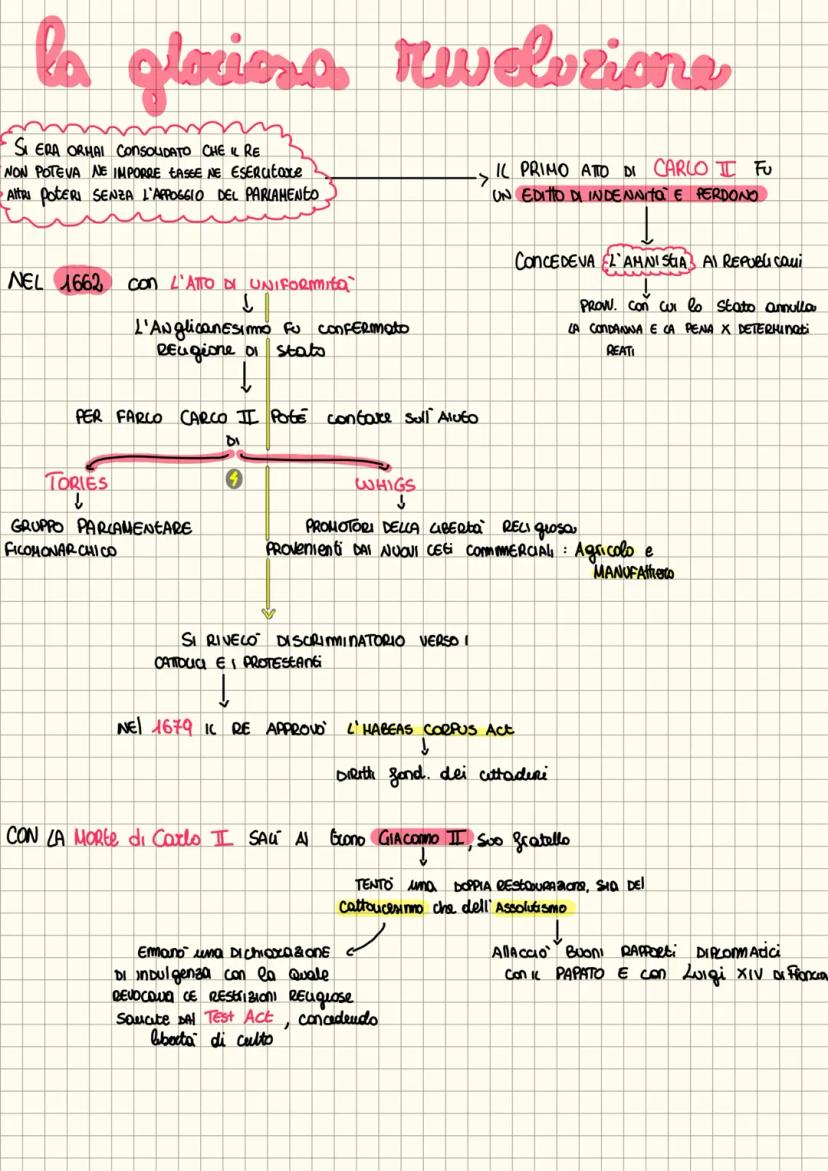 la gloriosa rivoluzione
SI ERA ORMAI CONSOLIDATO CHE IL RE
NON POTEVA NE IMPORRE TASSE NE ESERCITARE
ALTRI POTERI SENZA L'APPOGGIO DEL PARLAMENTO
IL PRIMO ATTO DI CARLO II FU
UN EDITTO DI INDENNITA' E PERDONO
CONCEDEVA L'AMNISTIA AI REPUBLICANI
PROVV. CON CUI LO STATO ANNULLA
LA CONDANNA E LA PENA X DETERMINATI
REATI
NEL 1662 CON L'ATTO DI UNIFORMITA'
L'ANGLICANESIMO FU CONFERMATO
RELIGIONE DI STATO
PER FARLO CARLO II POTÉ CONTARE SULL'AIUTO
DI
TORIES
WHIGS
GRUPPO PARLAMENTARE
FILOMONARCHICO
PROMOTORI DELLA LIBERTA' RELIGIOSA
PROVENIENTI DAI NUOVI CETI COMMERCIALI : AGRICOLO E
MANUFATTIERO
SI RIVELO' DISCRIMINATORIO VERSO I
CATTOLICI E I PROTESTANTI
NEL 1679 IL RE APPROVO' L'HABEAS CORPUS ACT
DIRITTI FOND. DEI CITTADINI
CON LA MORTE DI CARLO II SALI' AL TRONO GIACOMO II, SUO FRATELLO
TENTO' UNA DOPPIA RESTAURAZIONE, SIA DEL
CATTOLICESIMO CHE DELL'ASSOLUTISMO
EMANO' UNA DICHIARAZIONE
DI INDULGENZA CON LA QUALE
REVOCAVA LE RESTRIZIONI RELIGIOSE
SANCITE DAL TEST ACT, CONCEDENDO
LIBERTA' DI CULTO
ALLACCIO' BUONI RAPPORTI DIPLOMATICI
CON IL PAPATO E CON LUIGI XIV DI FRANCIA